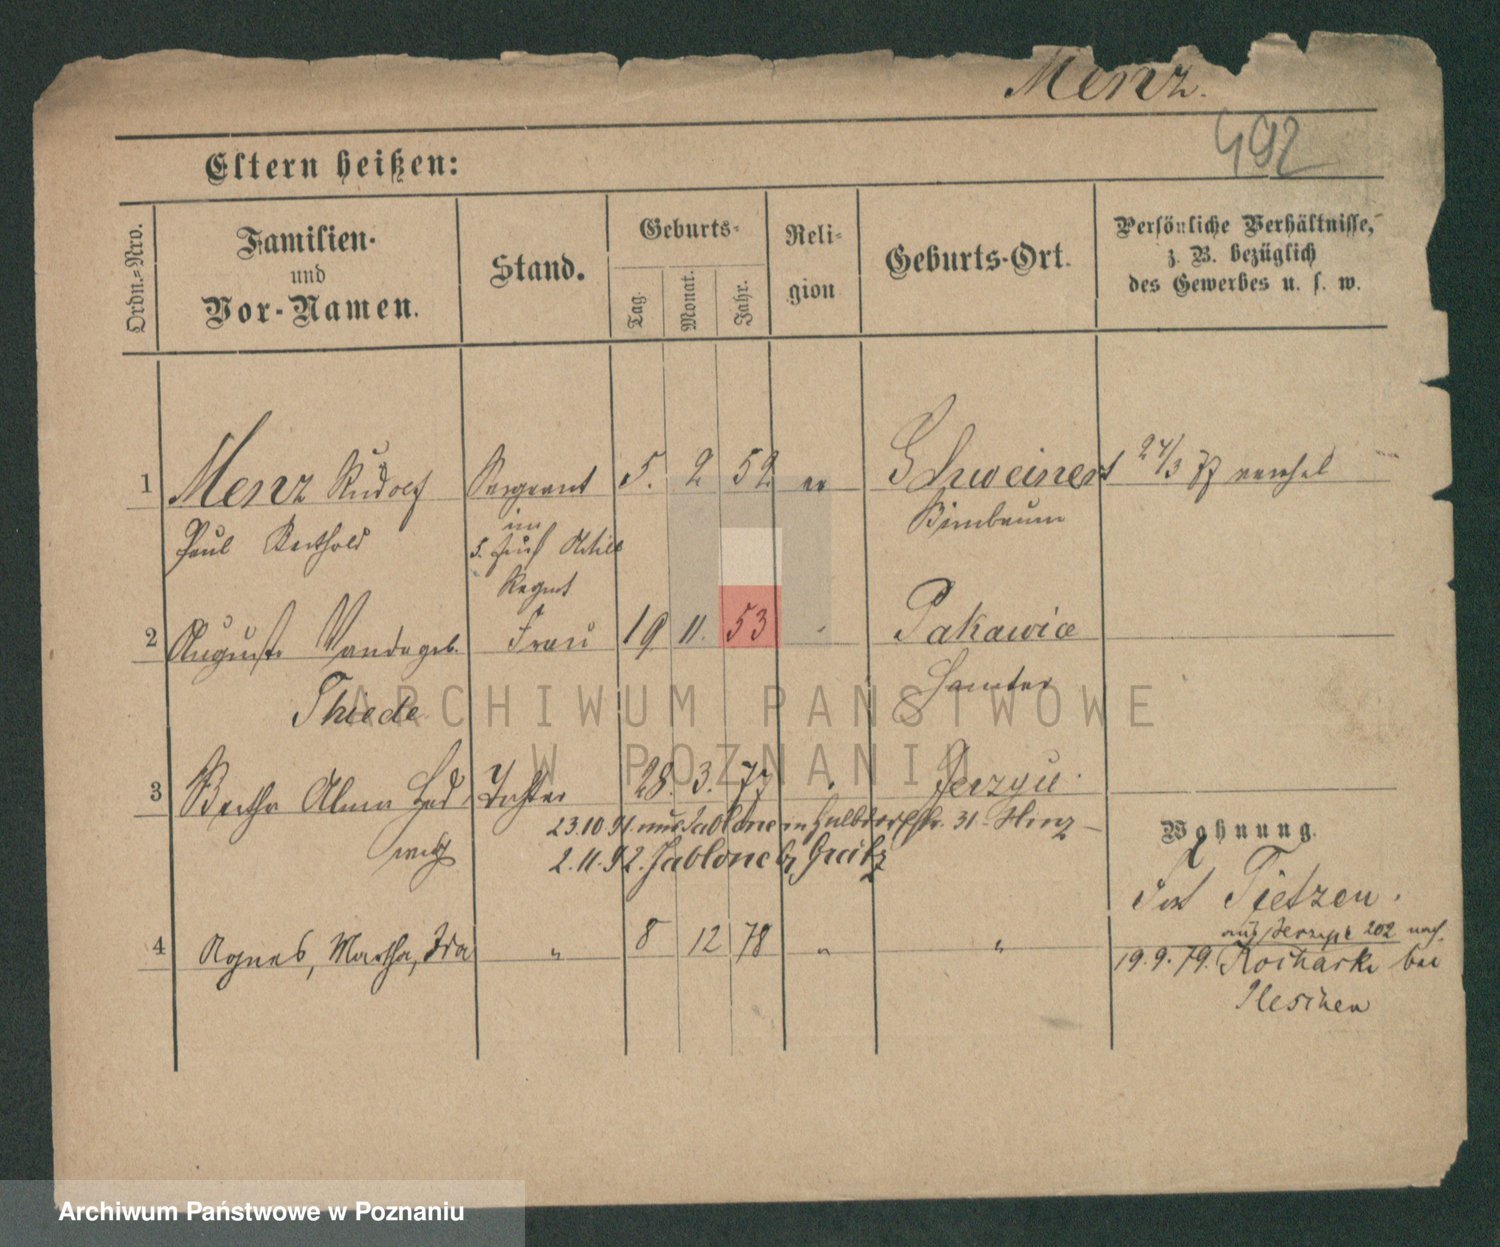 Menz.
492
Eltern heißen:
Ordn.-Nro.
Familien-
und
Vor-Namen.
Stand.
Geburts-
Tag.
Monat.
Jahr.
Reli-
gion
Geburts-Ort.
Persönliche Verhältnisse,
z. B. bezüglich
des Gewerbes u. s. w.
1 Menz Rudolf Sergeant 5. 2 52 ev Schweinert
Paul Berthold im Birnbaum
5. Artill
Regmt
2 Auguste Wanda geb. Frau 19 11. 53 " Pakawie
Thiede Samter
3 Bertha Alma Hed- Tochter 28. 3. 77 " Jerzyce
wig
23.10.91. Jablone in 31
2.11.92. Jablone b/ Grätz
Wohnung.
Fort Tietzen.
4 Agnes, Martha, Ida " 8 12 78 " "
aus Jerzyce 202 nach
19.9.79. bei
Pleschen
ARCHIWUM PAŃSTWOWE
W POZNANIU
Archiwum Państwowe w Poznaniu